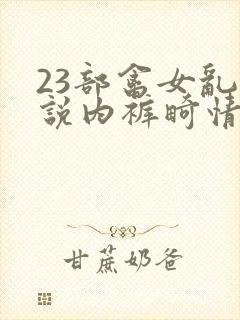 23部畜女乱
説内裤畸情
甘蔗奶爸